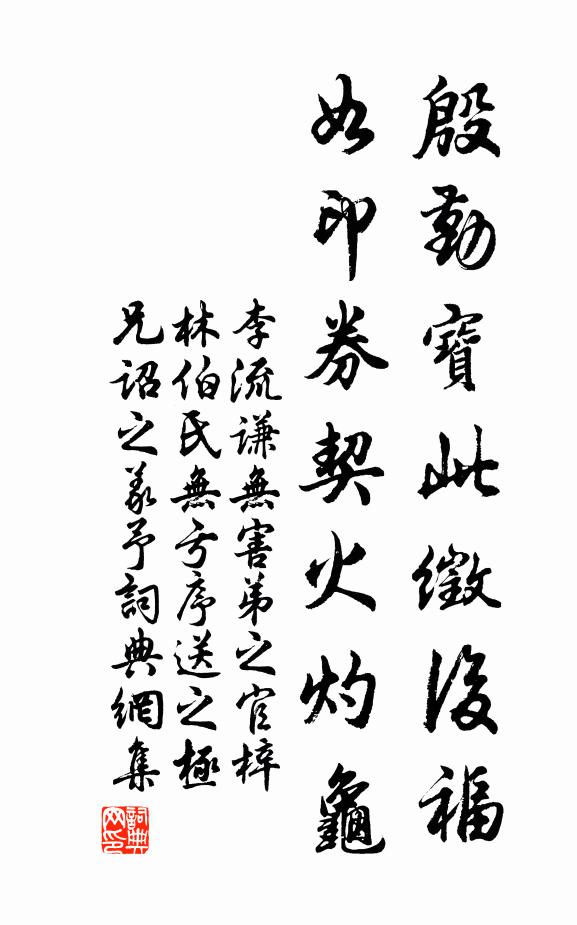 殷勤寶此徵後福
如印券契火灼龜
李流谦無害弟之官梓
林伯氏無言序送之極
兄詔之義予詞典網集
詞典網印